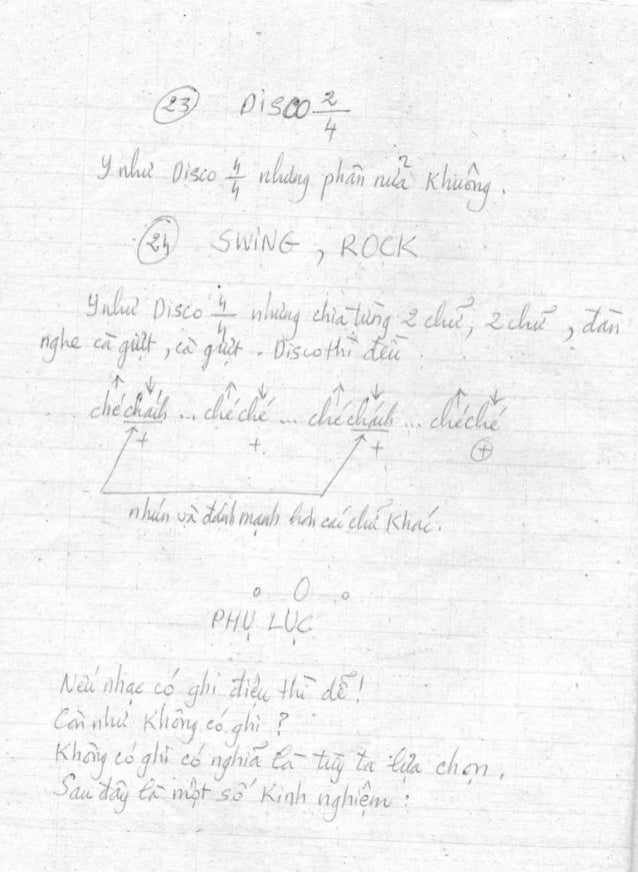 23 DISCO 2/4
Y như Disco 4/4 nhưng phân nửa khuông.
24 SWING, ROCK
Y như Disco 4/4 nhưng chia từng 2 chữ, 2 chữ, đàn
nghe cà giựt, cà giựt. Disco thì đều.
ché chách ... ché ché ... ché chách ... ché ché
+ + + +
nhún và đánh mạnh hơn các chữ khác.
PHỤ LỤC
Nếu nhạc có ghi điệu thì dễ!
Còn như không có ghi?
Không có ghi có nghĩa là tùy ta lựa chọn.
Sau đây là một số kinh nghiệm: